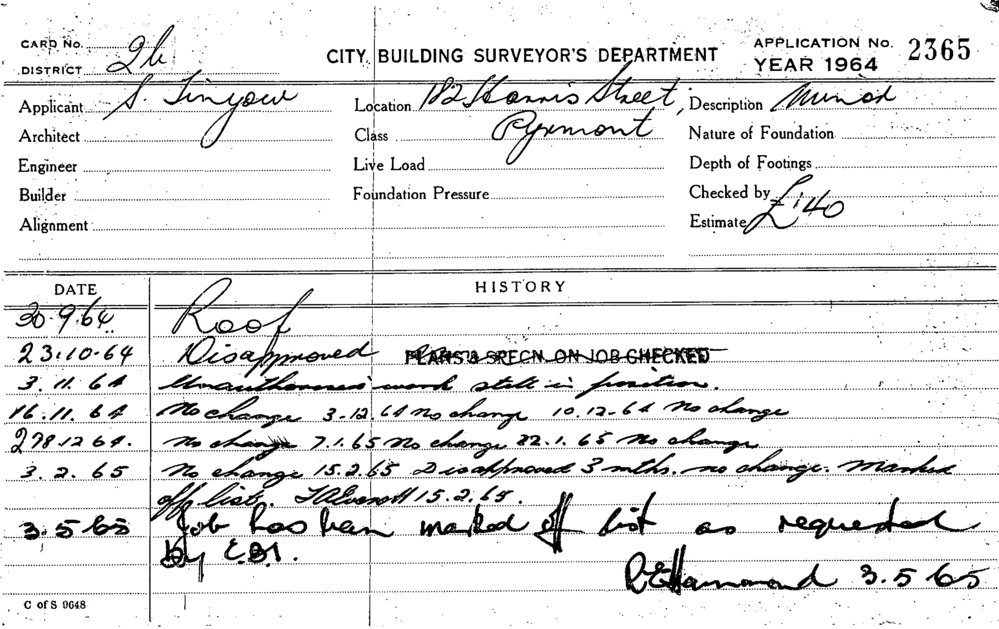 CARD No.
DISTRICT 26
CITY BUILDING SURVEYOR'S DEPARTMENT
APPLICATION No. 2365
YEAR 1964
Applicant S. Tinyow
Location 182 Harris Street, Pyrmont
Description Minor
Architect
Class
Nature of Foundation
Engineer
Live Load
Depth of Footings
Builder
Foundation Pressure
Checked by
Alignment
Estimate £140
DATE
HISTORY
30.9.64 Roof
23.10.64 Disapproved PLANS & SPECN. ON JOB CHECKED
3.11.64 Unauthorised work still in position.
16.11.64 No change 3.12.64 No change 10.12.64 No change
28.12.64. No change 7.1.65 No change 22.1.65 No change
3.2.65 No change 15.2.65 Disapproved 3 mths. no change. Marked
off list. 15.2.65.
3.5.65 Job has been marked off list as requested
by C.B.I.
R.E. Hammond 3.5.65
C of S 9648